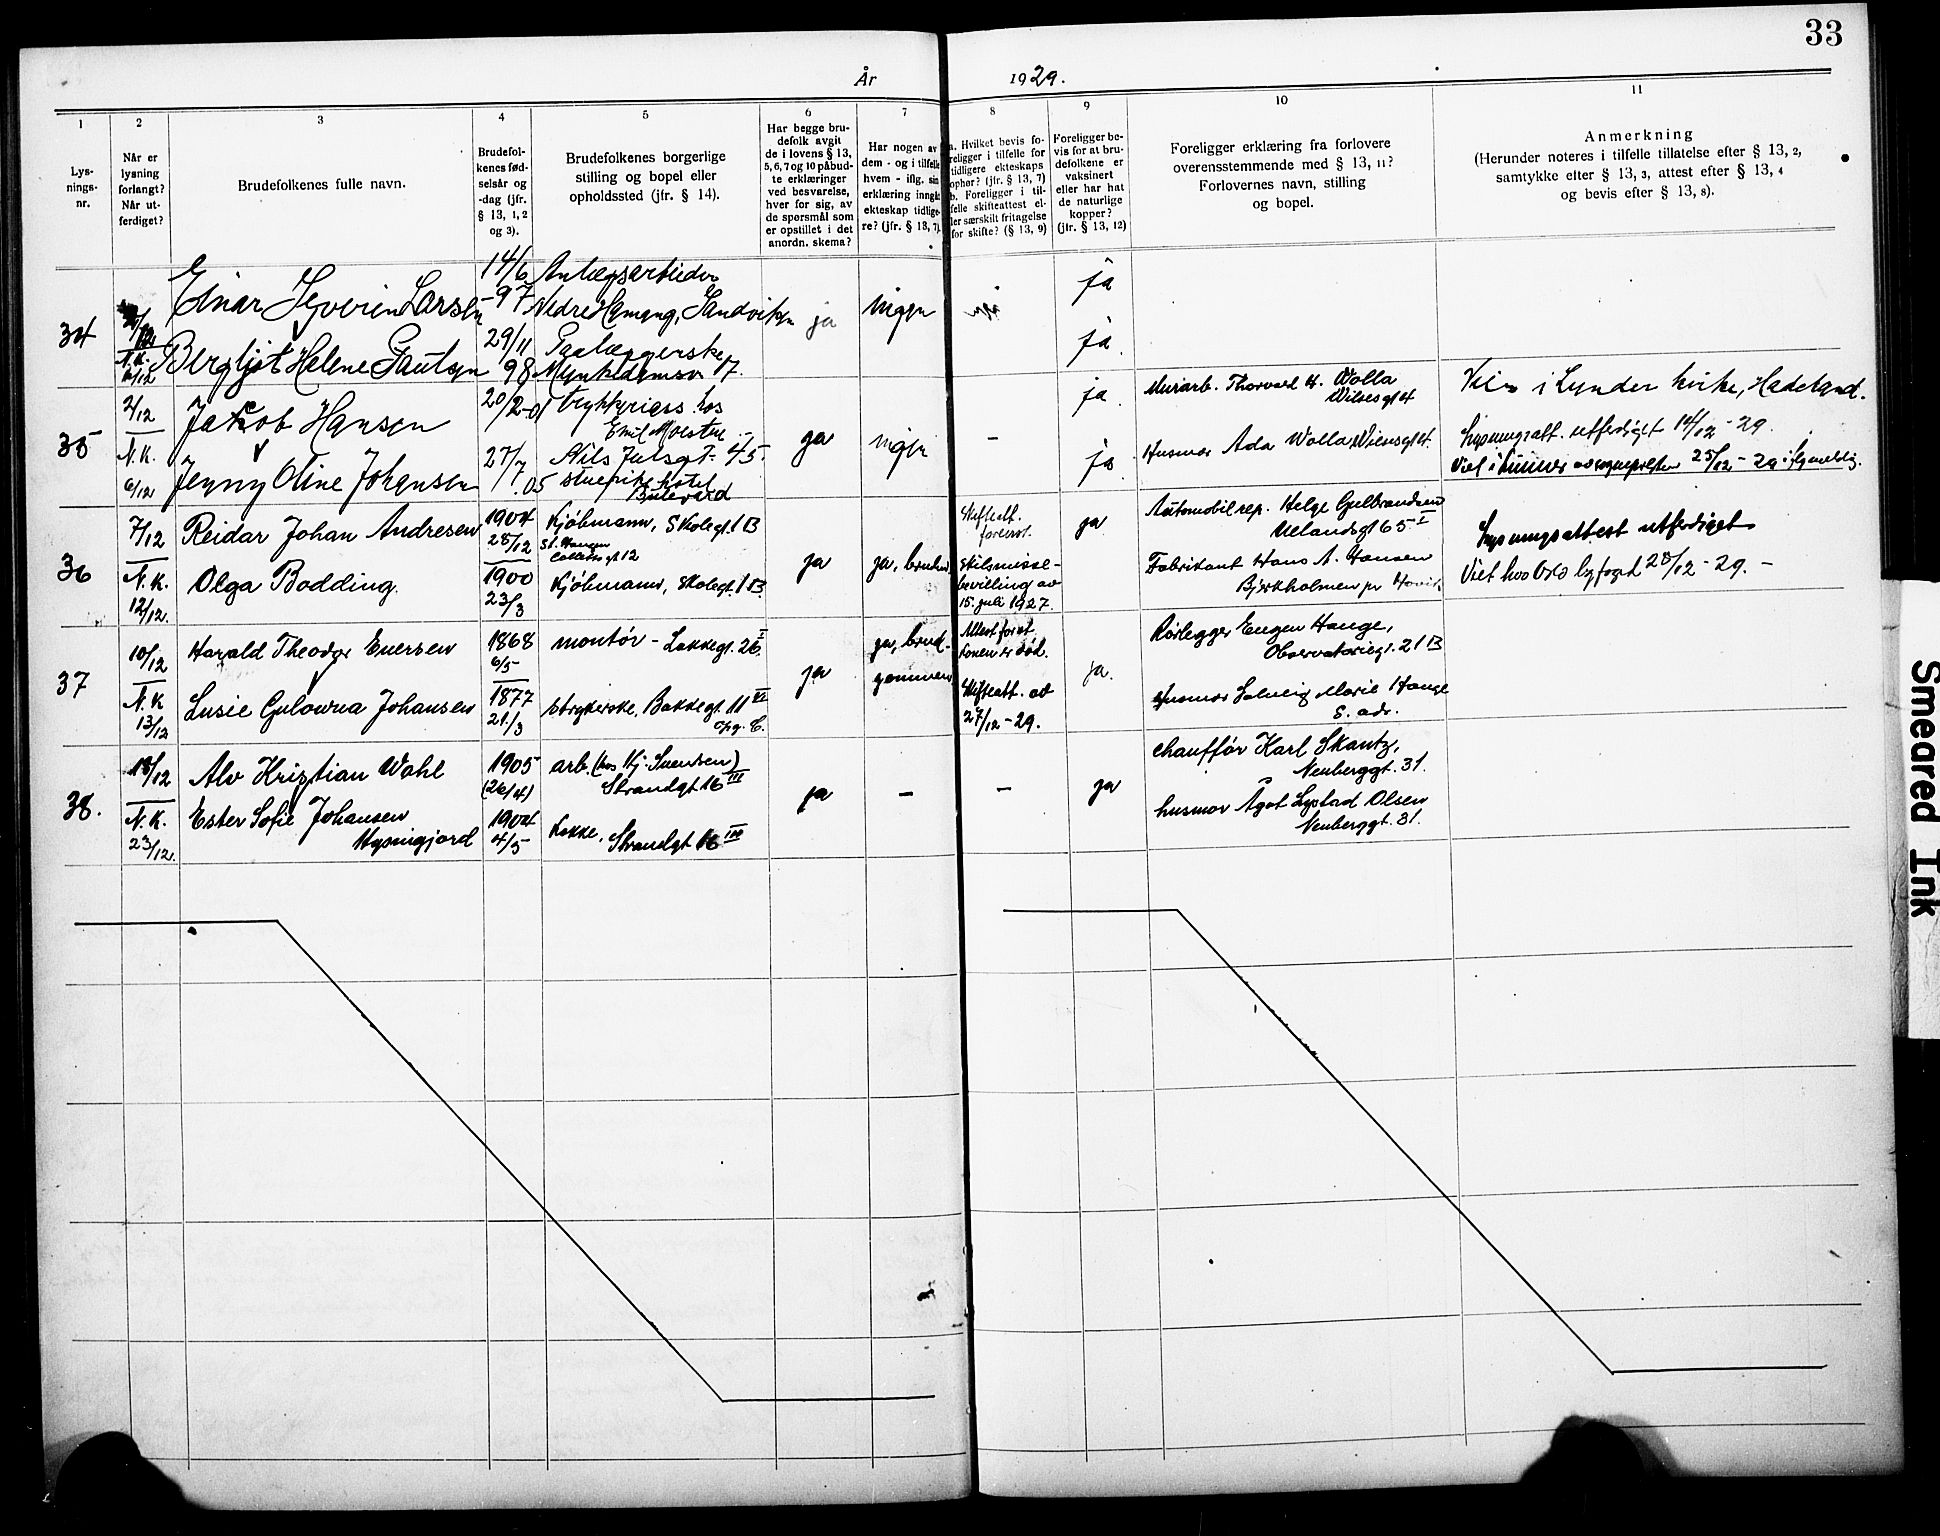 33
År 1929.
1
Lys-
nings-
nr.
2
Når er
lysning
forlangt?
Når ut-
ferdiget?
3
Brudefolkenes fulle navn.
4
Brudefol-
kenes fød-
selsår og
-dag (jfr.
§ 13, 1, 2
og 3).
5
Brudefolkenes borgerlige
stilling og bopel eller
opholdssted (jfr. § 14).
6
Har begge bru-
defolk avgit
de i lovens § 13,
5, 6, 7 og 10 påbud-
te erklæringer
ved besvarelse,
hver for sig, av
de spørsmål som
er opstillet i det
anordn. skema?
7
Har nogen av
dem - og i tilfelle
hvem - iflg. sin
erklæring inngåt
ekteskap tidlige-
re? (jfr. § 13, 7).
8
a. Hvilket bevis fo-
religger i tilfelle for
tidligere ekteskaps
ophør? (jfr. § 13, 7)
b. Foreligger i til-
felle skifteattest el-
ler særskilt fritagelse
for skifte? (§ 13, 9)
9
Foreligger be-
vis for at bru-
defolkene er
vaksinert
eller har hat
de naturlige
kopper?
(jfr. § 13, 12)
10
Foreligger erklæring fra forlovere
overensstemmende med § 13, 11?
Forlovernes navn, stilling
og bopel.
11
Anmerkning
(Herunder noteres i tilfelle tillatelse efter § 13, 2,
samtykke efter § 13, 3, attest efter § 13, 4
og bevis efter § 13, 8).
34
N.K.
6/12
Einar Severin Larsen
Bergljot Helene Paulsen
14/6
-97
29/11
98
Anlegsarbeider
Nedre Hamang, Sandviken
Munkedamsv 17.
ja
ingen
ja
ja.
35
2/12
N.K.
6/12
Jakob Hansen
Jenny Oline Johansen
20/2-01
27/7
.05
hos
Emil Moestue
Nils Juelsgt. 45.
stuepike hotel
Bulevard
ja
ingen
-
ja.
ja
Murarb. Thorvald H. Wolla
Wilsesgt 4
Husmor Ada Wolla Wilsesgt 4.
Viet i Lunder kirke, Hadeland.
Lysningsatt. utferdiget 14/12 - 29.
Viet i Lunner av sognepresten 25/12 - 29
36
7/12
N.K.
12/12.
Reidar Johan Andresen
Olga Bodding.
1904
28/12
1900
23/3
Kjøbmann, Skolegt. 1 B
St. Hansen
Colletts gt 12
Kjøbmann, Skolegt. 1 B.
ja
ja, bruden
Skifteatt.
forevist.
Skilsmisse-
bevilling av
15. juli 1927.
ja
Automobilrep. Helge Gulbrandsen
Uelandsgt 65 I
Fabrikant Hans A. Hansen
Bjerkholmen pr Høvik.
Lysningsattest utferdiget
Viet hos Oslo byfogd 28/12 - 29. -
37
10/12
N.K
13/12
Harald Theodor Evensen
Lusie Gulowna Johansen
1868
6/5
1877
21/3
montør - Lakkegt. 26 I
strykerske, Bakkegt. 11 VI
opg. C.
ja
ja, brud-
gommen
Attest forat
konen er død.
Skifteatt. av
27/12 - 29.
ja.
Rørlegger Eugen Hauge,
Observatoriegt. 21 B
Husmor Solveig Marie Hauge
S. adr.
38.
18/12
N.K.
23/12.
Alv Kristian Wahl
Ester Sofie Johansen
Myrnigjord
1905
(26/4)
1904
4/5
arb. (hos Hj. Svendsen)
Strandgt 16 III
Kokke. Strandgt 16 III
ja
-
-
ja
chauffør Karl Skantz,
Neuberggt. 31.
husmor Ågot Lystad Olsen
Neuberggt. 31.
Smeared Ink